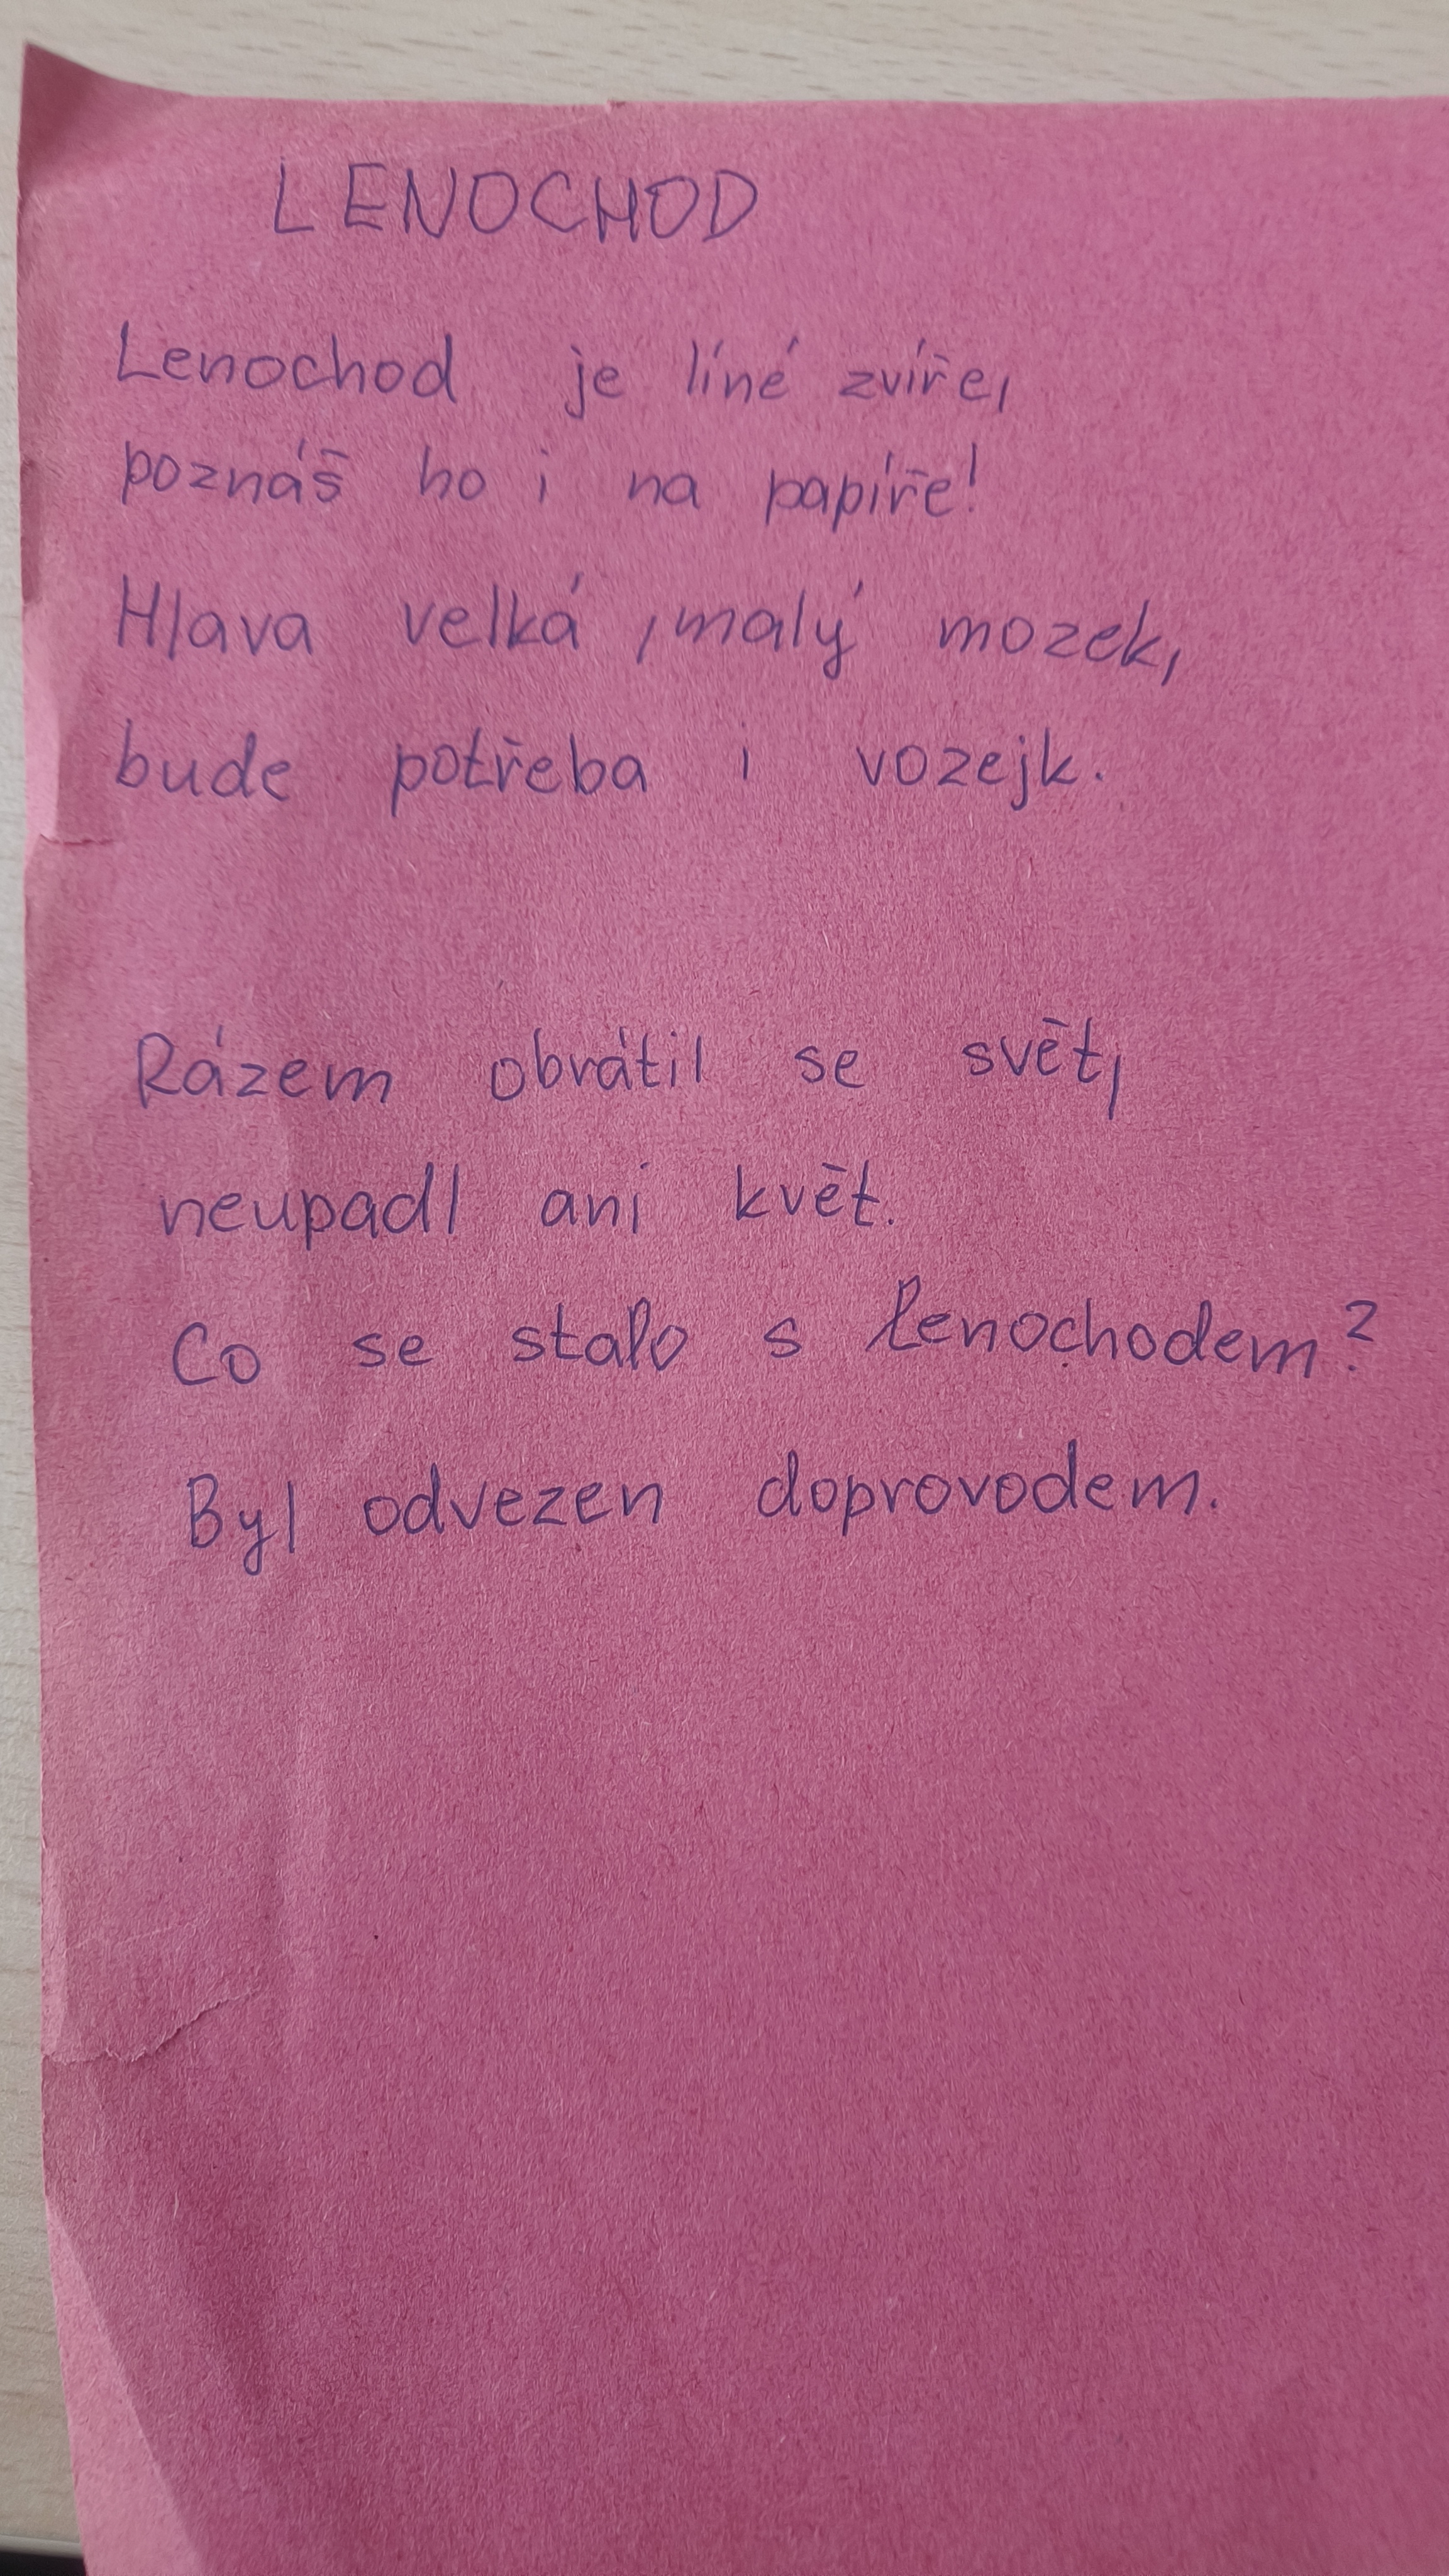 LENOCHOD
Lenochod je líné zvíře,
poznáš ho i na papíře!
Hlava velká, malý mozek,
bude potřeba i vozejk.
Rázem obrátil se svět,
neupadl ani květ.
Co se stalo s lenochodem?
Byl odvezen doprovodem.